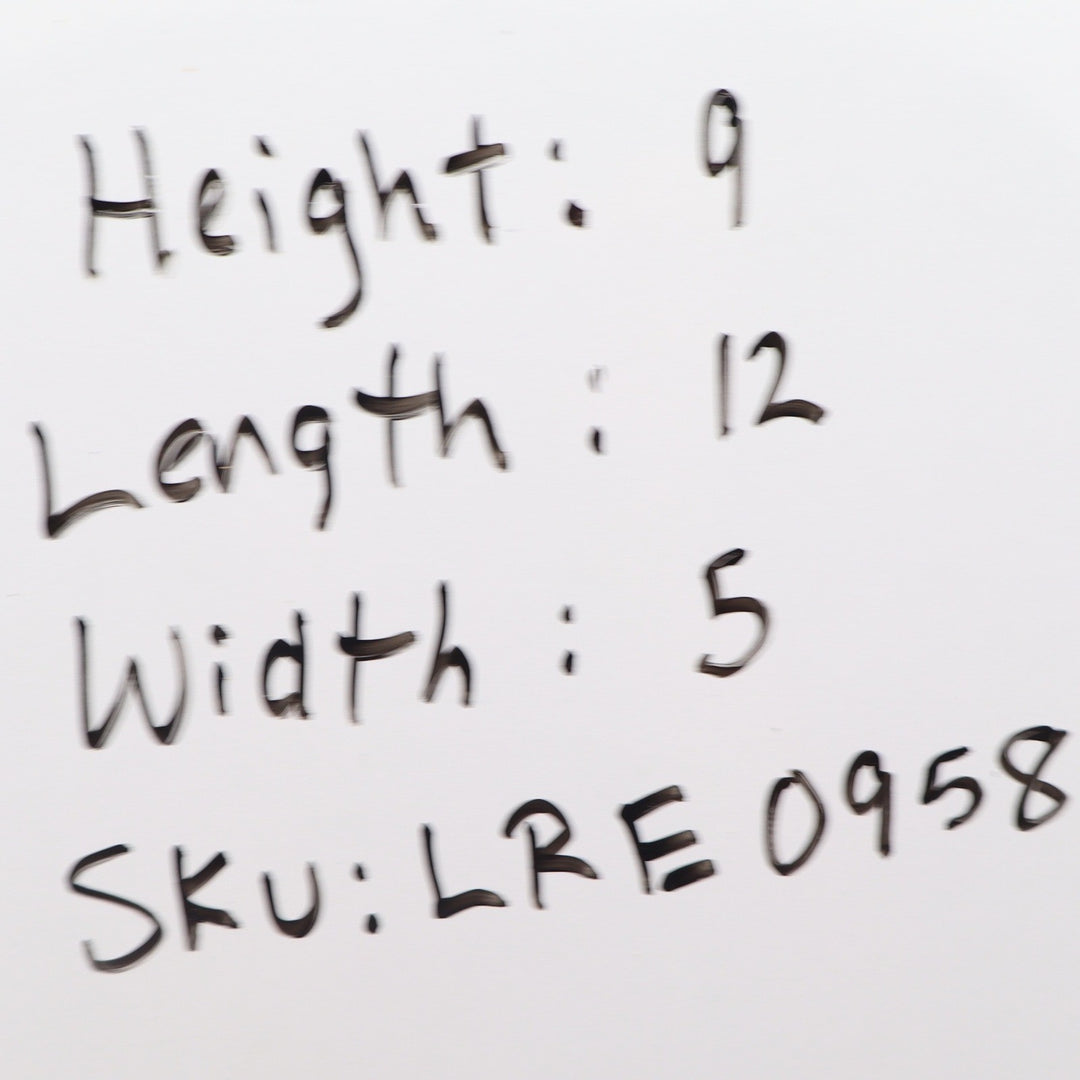 Height: 9
Length: 12
Width: 5
SKU: LRE 0958